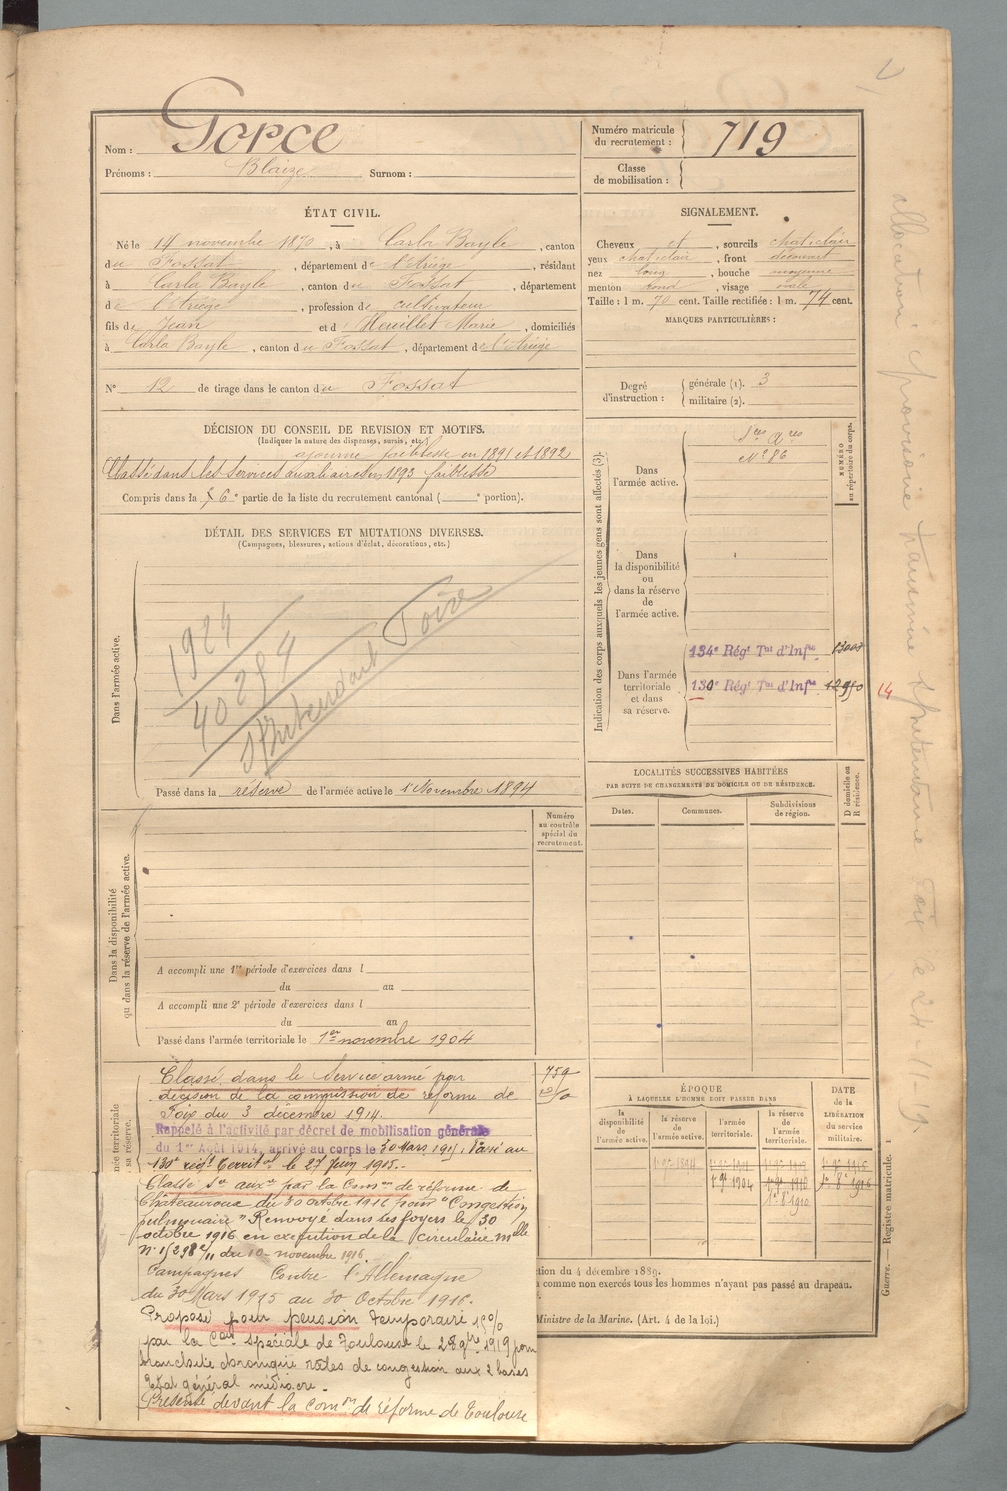 Nom : Gorce
Prénoms : Blaize Surnom :
Numéro matricule du recrutement : 719
Classe de mobilisation :
ÉTAT CIVIL.
Né le 14 novembre 1870, à Carla Bayle, canton
du Fossat, département de l'Ariège, résidant
à Carla Bayle, canton du Fossat, département
de l'Ariège, profession de cultivateur
fils de Jean et d Heuillet Marie, domiciliés
à Carla Bayle, canton du Fossat, département de l'Ariège
N° 12 de tirage dans le canton du Fossat
SIGNALEMENT.
Cheveux et, sourcils chat. clair
yeux chat. clair, front découvert
nez long, bouche moyenne
menton rond, visage ovale
Taille : 1 m. 70 cent. Taille rectifiée : 1 m. 74 cent.
MARQUES PARTICULIÈRES :
Degré d'instruction : générale (1). 3
militaire (2).
DÉCISION DU CONSEIL DE REVISION ET MOTIFS.
(Indiquer la nature des dispenses, sursis, etc.)
ajourné faiblesse en 1891 et 1892
Classé dans les services auxiliaires en 1893 faiblesse
Compris dans la 6e partie de la liste du recrutement cantonal ( e portion).
DÉTAIL DES SERVICES ET MUTATIONS DIVERSES.
(Campagnes, blessures, actions d'éclat, décorations, etc.)
Dans l'armée active.
1924
40294
Intendant Foix
Passé dans la réserve de l'armée active le 1 Novembre 1894
Indication des corps auxquels les jeunes gens sont affectés (3).
NUMÉRO au répertoire du corps.
Dans l'armée active.
Sces Ares
N° 86
Dans la disponibilité ou dans la réserve de l'armée active.
Dans l'armée territoriale et dans sa réserve.
134e Régt Tal d'Infie
130e Régt Tal d'Infie
14
LOCALITÉS SUCCESSIVES HABITÉES
PAR SUITE DE CHANGEMENTS DE DOMICILE OU DE RÉSIDENCE.
Dates. Communes. Subdivisions de région. D domicile ou R résidence.
Dans la disponibilité ou dans la réserve de l'armée active.
Numéro au contrôle spécial du recrutement.
A accompli une 1re période d'exercices dans l
du au
A accompli une 2e période d'exercices dans l
du au
Passé dans l'armée territoriale le 1er novembre 1904
née territoriale
sa réserve.
Classé dans le Service armé par
décision de la commission de réforme de
Foix du 3 décembre 1914.
Rappelé à l'activité par décret de mobilisation générale
du 1er Août 1914, arrivé au corps le 30 Mars 1915, Passé au
130e régt territal le 27 Juin 1915.
759
Classé Sce auxre par la Comon de réforme de
Châteauroux du 30 octobre 1916 pour "Congestion
pulmonaire" Renvoyé dans ses foyers le 30
octobre 1916 en exécution de la circulaire mlle
du 10 novembre 1916.
Campagnes Contre l'Allemagne
du 30 Mars 1915 au 30 Octobre 1916.
Proposé pour pension temporaire
par la Con spéciale de Toulouse le 28 9bre 1919 pour
bronchite chronique râles de congestion aux 2 bases
Etat général médiocre.
Présenté devant la comon de réforme de Toulouse
ÉPOQUE
À LAQUELLE L'HOMME DOIT PASSER DANS
la disponibilité de l'armée active. la réserve de l'armée active. l'armée territoriale. la réserve de l'armée territoriale.
DATE de la LIBÉRATION du service militaire.
ction du 4 décembre 1889.
a comme non exercés tous les hommes n'ayant pas passé au drapeau.
Ministre de la Marine. (Art. 4 de la loi.)
Guerre. — Registre matricule. 1
allocation provisoire
Intendance Foix le 24-11-19.